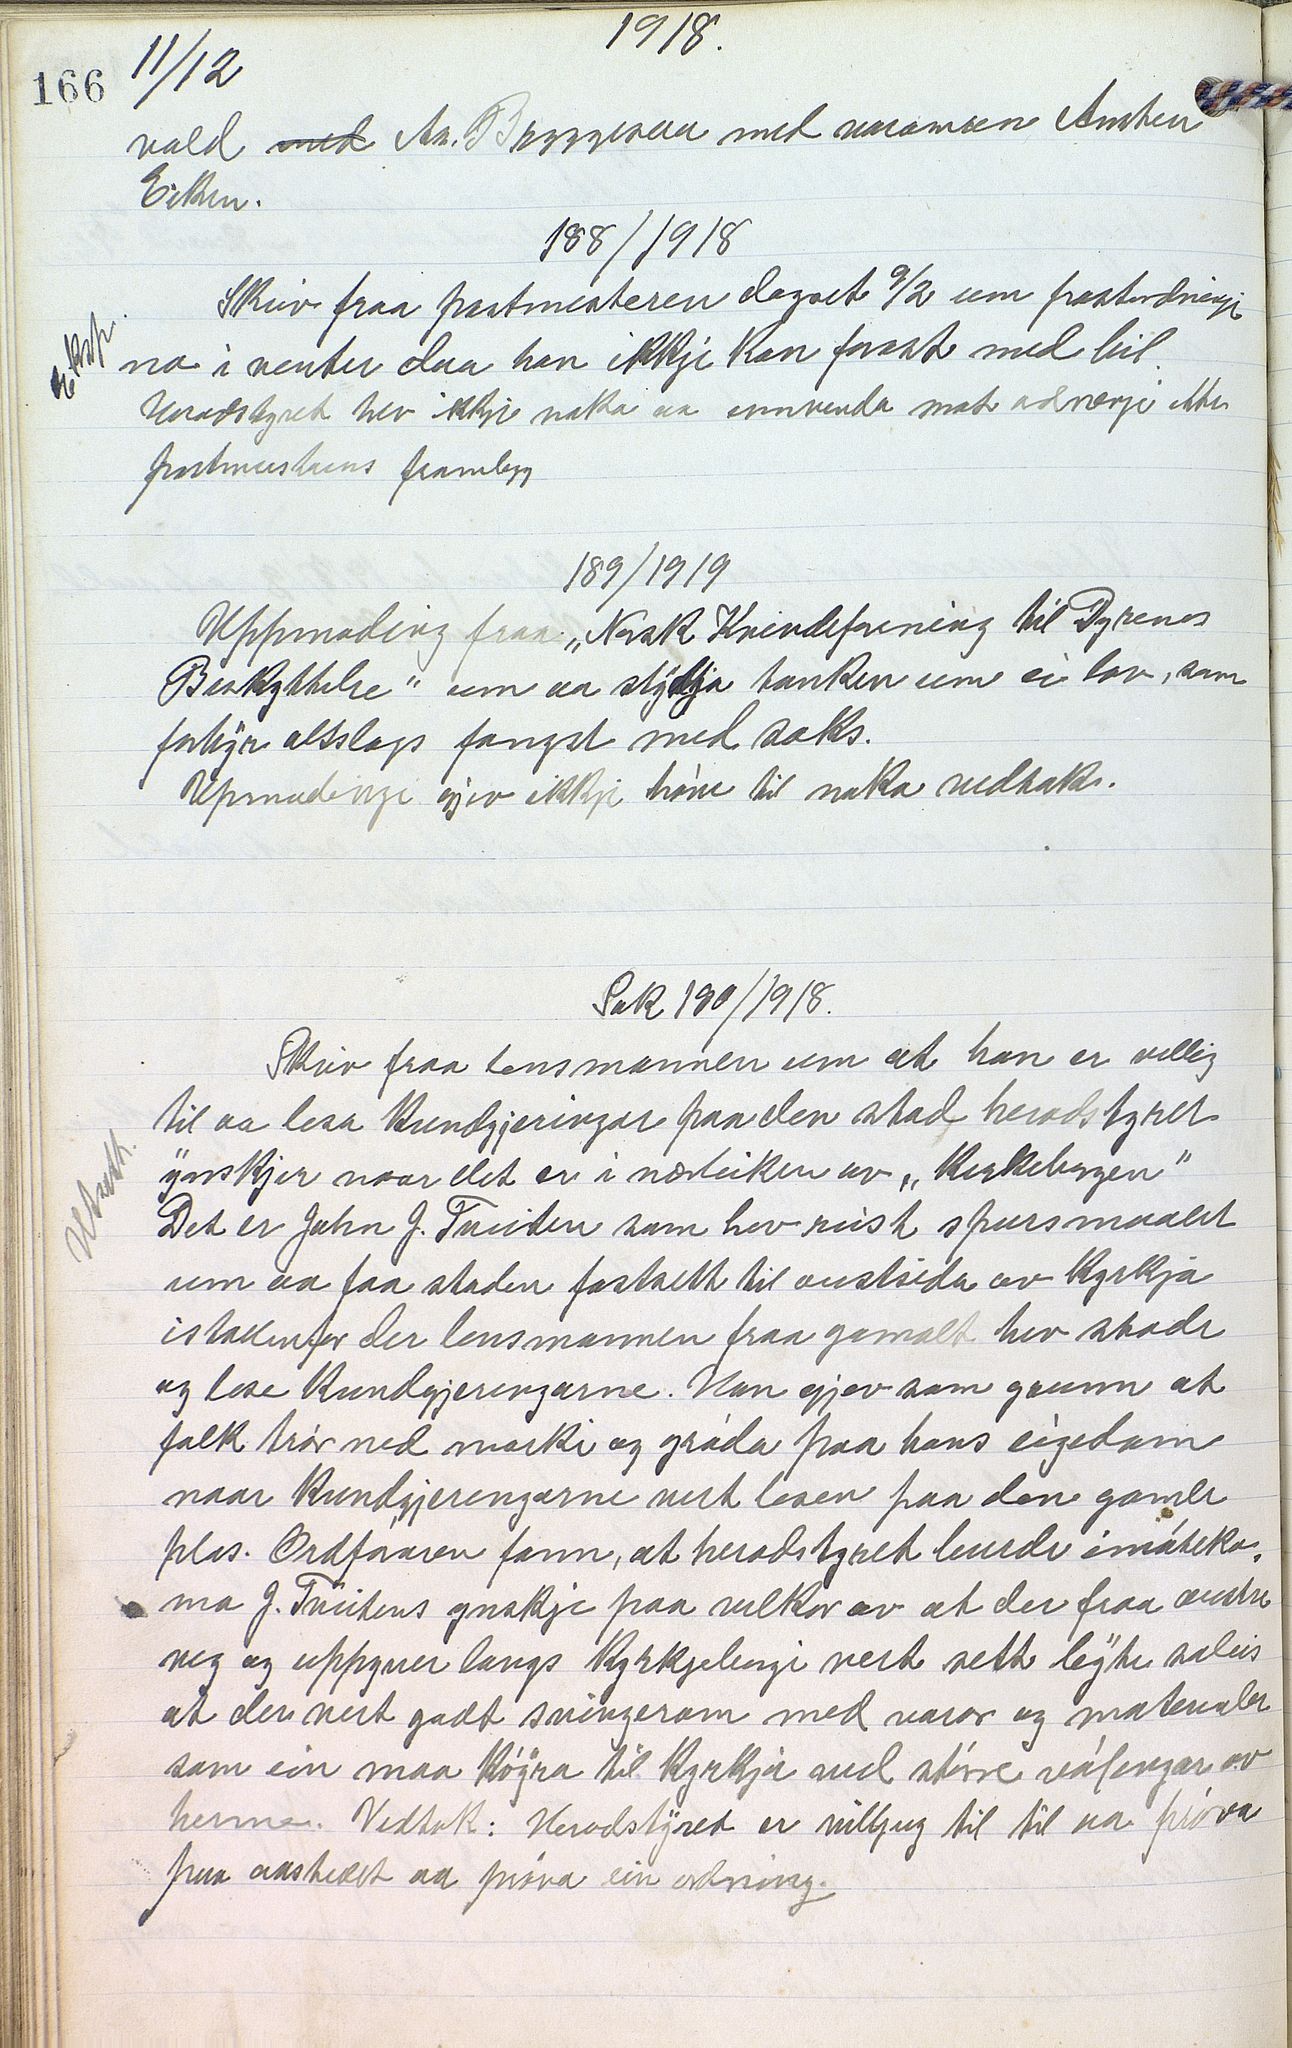 1918.
166 11/12
vald med An. Bryggesaa med varamaen Anstein
Eiken.
188/1918
Skriv fraa postmesteren dagsett 9/2 um postordningi
Eksp.
no i venter daa han ikkje kan forast med bil.
Heradstyret hev ikkje noko aa innvenda mot ordningi etter
postmesterens framlegg
189/1919
Uppmoding fraa "Norsk Kvindeforening til Dyrenes
Beskyttelse" um aa stydja tanken um ei lov, som
forbyr alslags fangst med saks.
Upmodingi gjev ikkje høve til noko vedtak.
Sak 190/1918.
Skriv fraa lensmannen um at han er villig
til aa lesa kundgjeringar paa den stad heradstyret
ynskjer naar det er i nærleiken av "Kirkebergen"
Utsett.
Det er John J. Tveiten som hev reist spursmaalet
um aa faa staden fastsett til austsida av Kyrkja
istadenfor der lensmannen fraa gamalt hev stade
og lese kundgjeringarne. Han gjev som grunn at
folk trør ned marki og grøda paa hans eigedom
naar kundgjeringarne vert lesen paa den gamle
plas. Ordføraren fann, at heradstyret burde imøteko-
ma J. Tveitens ynskje paa vilkor av at der fraa austre
veg og uppyver langs Kyrkjebergi vert sett legte soleis
at der vert godt svingerom med varor og materialer
som ein maa køyra til Kyrkja ved større vølingar av
henne. Vedtak: Heradstyret er villjug til til aa prøva
paa aastedet aa prøva ein ordning.